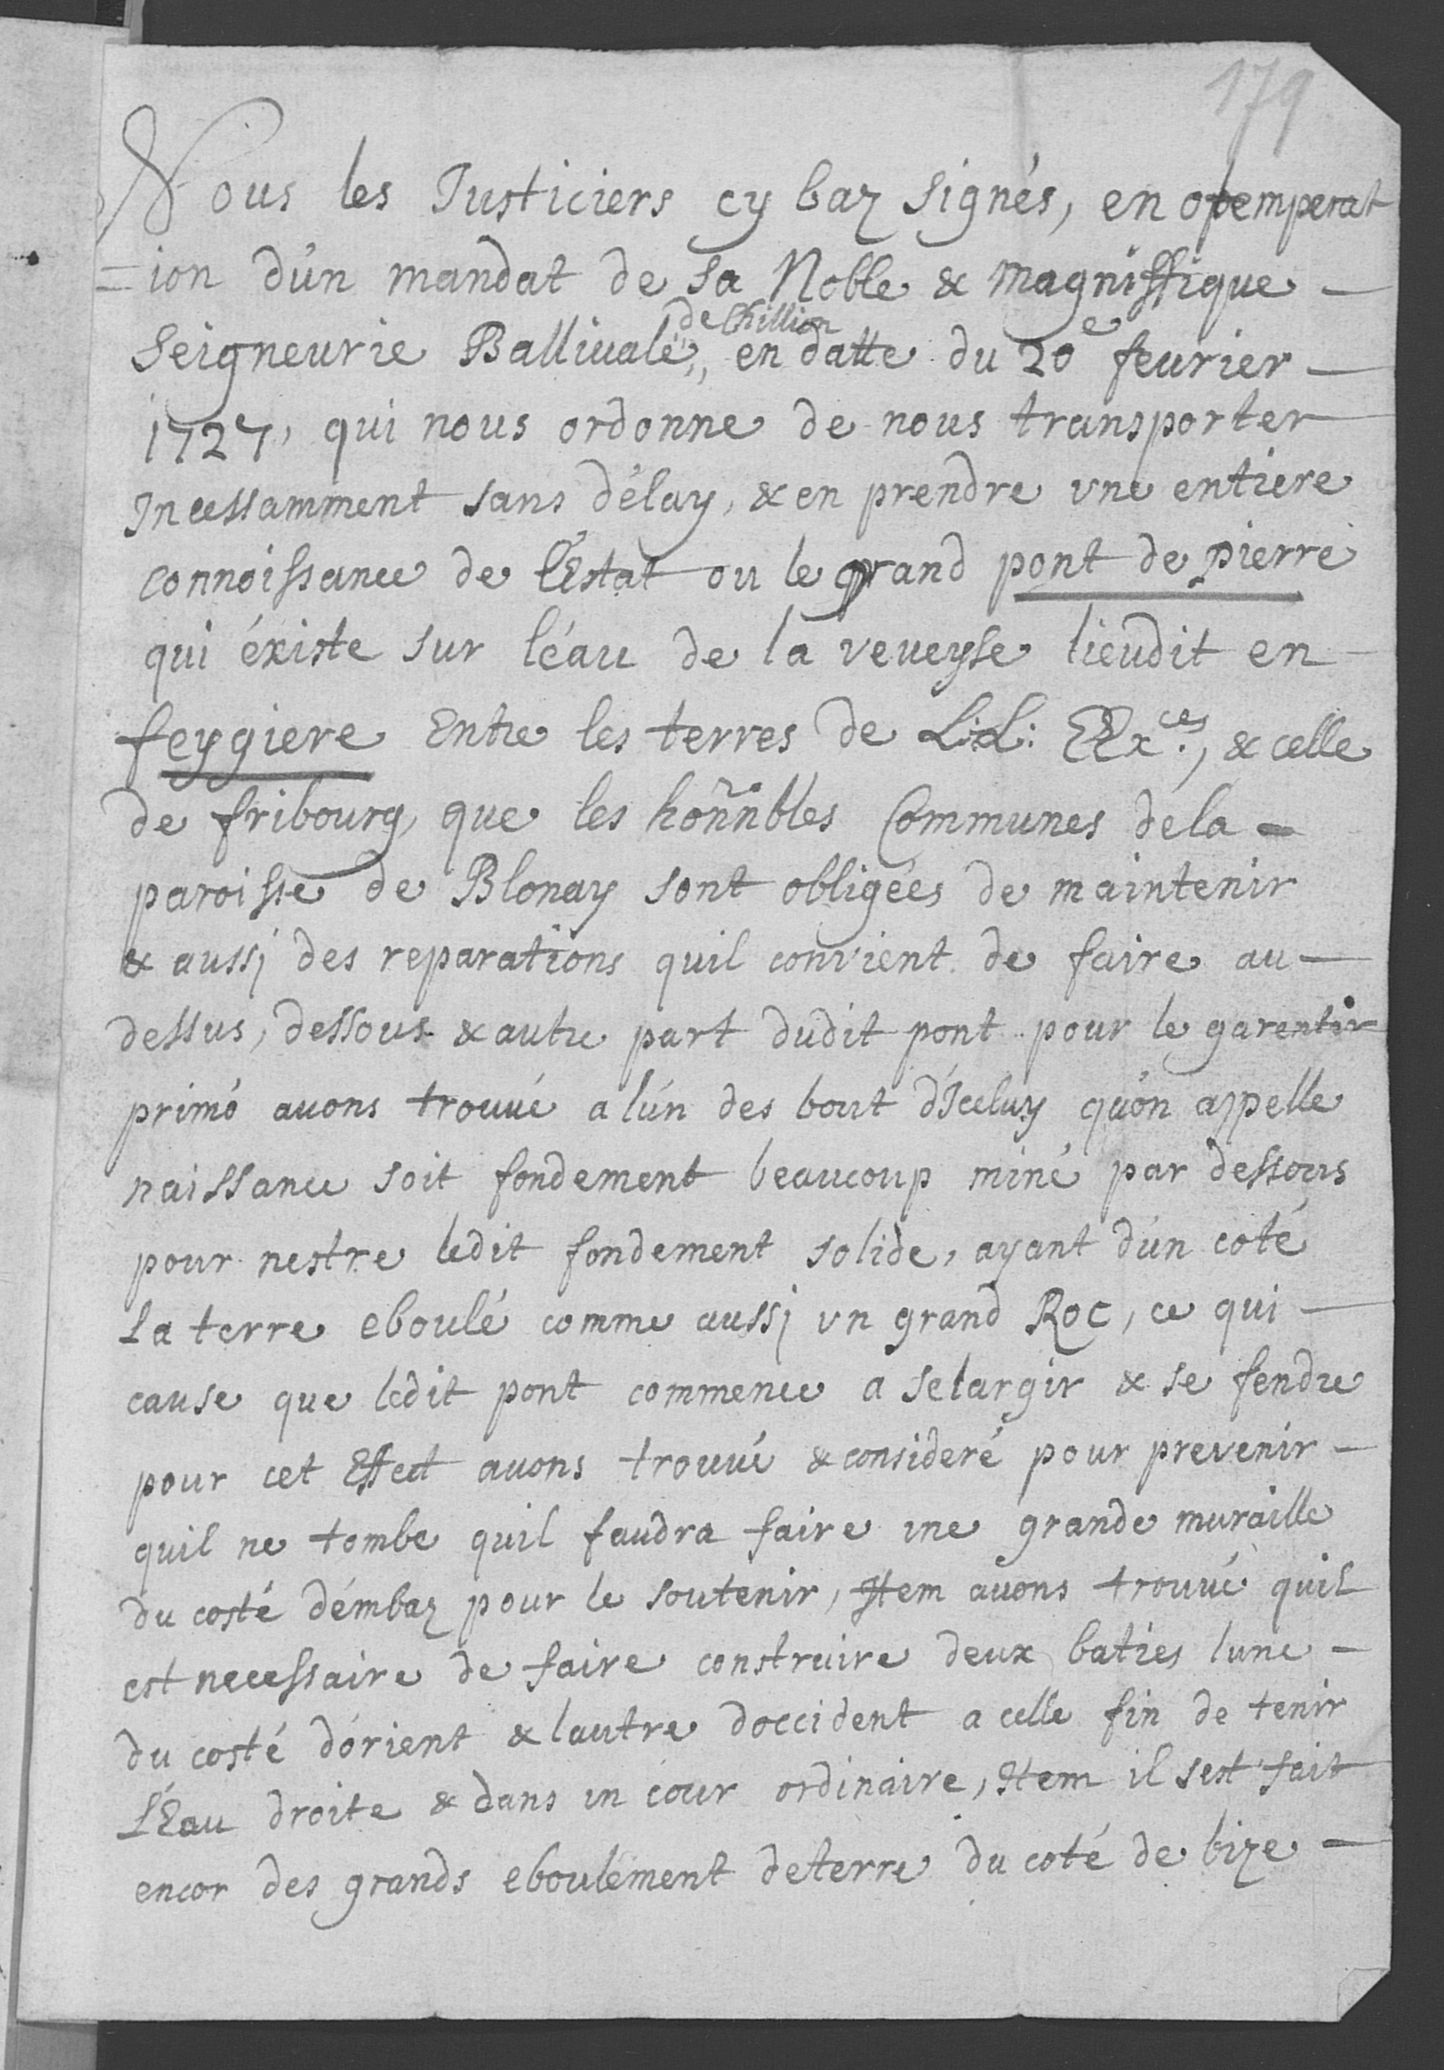 179
Nous les Justiciers cy baz signés, en optemperat
=ion d'ún mandat de sa Noble & magniffique
Seigneurie Ballivale, de Chillion en datte du 20e fevrier
1727, qui nous ordonne de nous transporter
Incessamment sans délay, & en prendre vne entiere
connoissance de l'Estat ou le grand pont de pierre
qui éxiste sur léau de la veveyse lieudit en
feygiere Entre les terres de L:L: EExces., & celle
de fribourg, que les honnbles Communes dela
paroisse de Blonay sont obligées de maintenir
& aussj des reparations quil convient de faire au
dessus, dessous & autre part dudit pont pour le garentir
primó avons trouvé a lún des bout d'Iceluy qu'on appelle
naissance soit fondement beaucoup miné par dessous
pour nestre ledit fondement solide, ayant dún coté
La terre eboulé comme aussj vn grand Roc, ce qui
cause que ledit pont commence a selargir & se fendre
pour cet Effect avons trouvé & consideré pour prevenir
quil ne tombe quil faudra faire une grande muraille
du costé démbaz pour le soutenir, Item avons trouvé quil
est necessaire de faire construire deux baties lune
du costé dórient & lautre doccident a celle fin de tenir
L'Eau droite & dans un cour ordinaire, Item il sest fait
encor des grands eboulement deterre du coté de bize